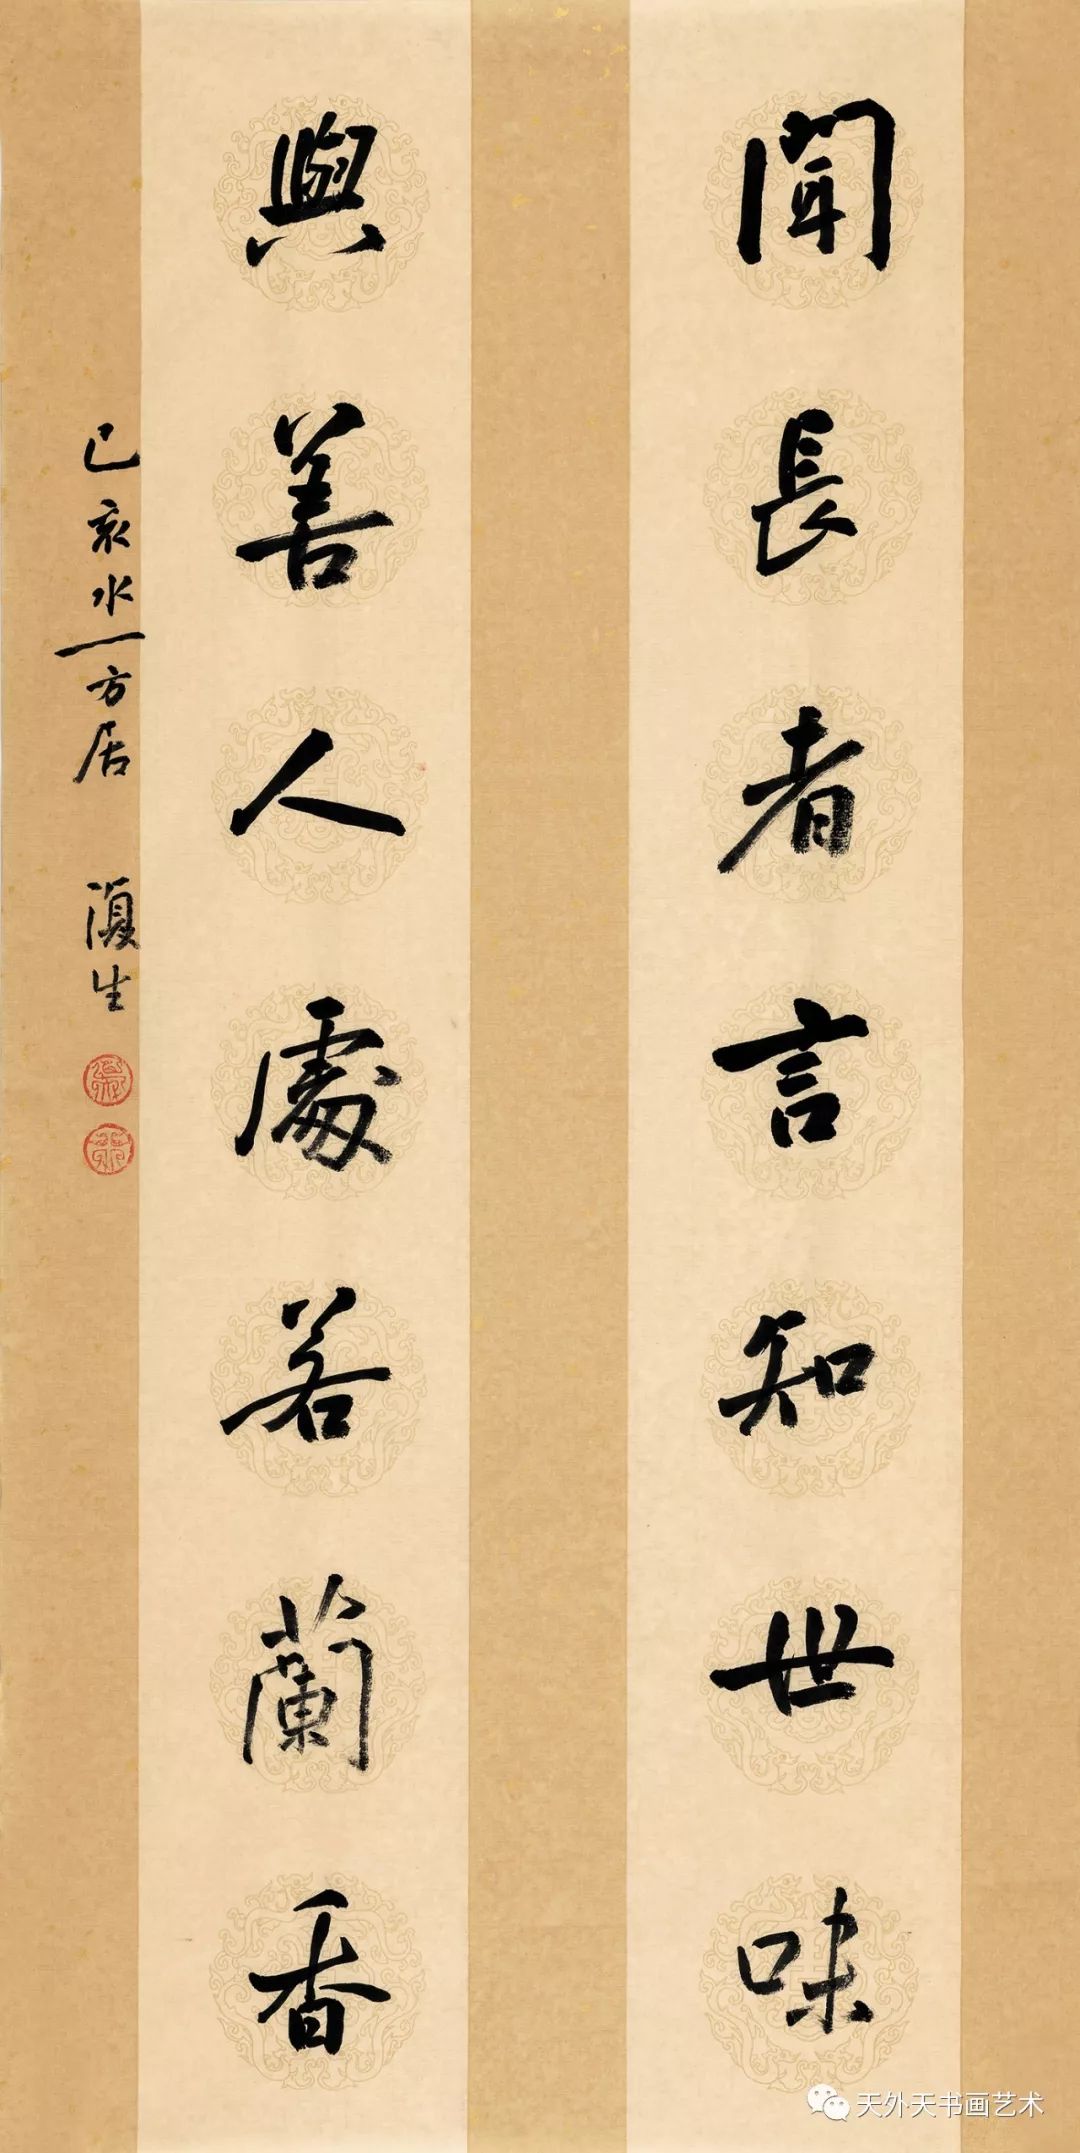 聞長者言知世味
與善人處若蘭香
己亥水一方居 復生
天外天书画艺术